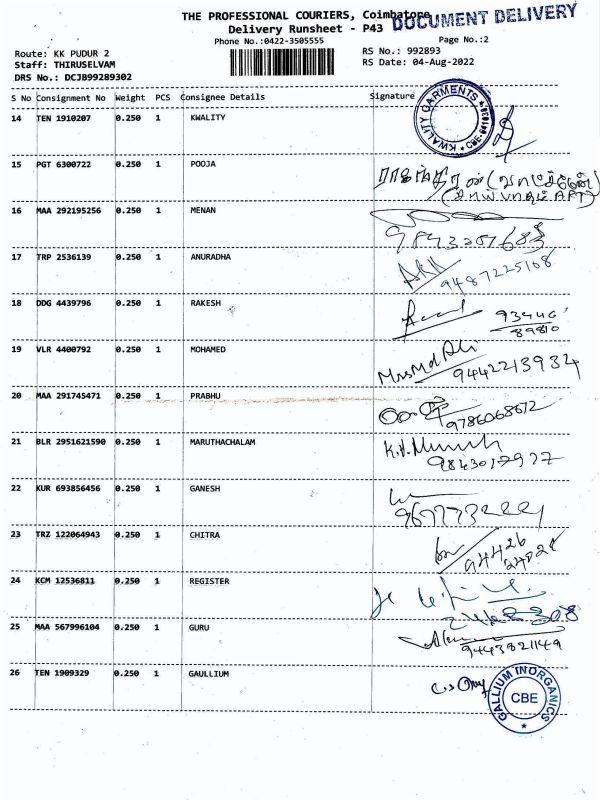 THE PROFESSIONAL COURIERS, Coimbatore
DOCUMENT DELIVERY
Delivery Runsheet - P43
Phone No.:0422-3505555
Page No.:2
Route: KK PUDUR 2
RS No.: 992893
Staff: THIRUSELVAM
RS Date: 04-Aug-2022
DRS No.: DCJB99289302
S No Consignment No Weight PCS Consignee Details Signature
14 TEN 1910207 0.250 1 KWALITY
KWALITY GARMENTS
15 PGT 6300722 0.250 1 POOJA
16 MAA 292195256 0.250 1 MENAN
17 TRP 2536139 0.250 1 ANURADHA
9487225168
18 DDG 4439796 0.250 1 RAKESH
89810
19 VLR 4400792 0.250 1 MOHAMED
Mrs Md Ali
9442213934
20 MAA 291745471 0.250 1 PRABHU
9786068672
21 BLR 2951621590 0.250 1 MARUTHACHALAM
22 KUR 693856456 0.250 1 GANESH
23 TRZ 122064943 0.250 1 CHITRA
94426
24 KCM 12536811 0.250 1 REGISTER
25 MAA 567996104 0.250 1 GURU
9443821149
26 TEN 1909329 0.250 1 GAULLIUM
GALLIUM INORGANICS
CBE